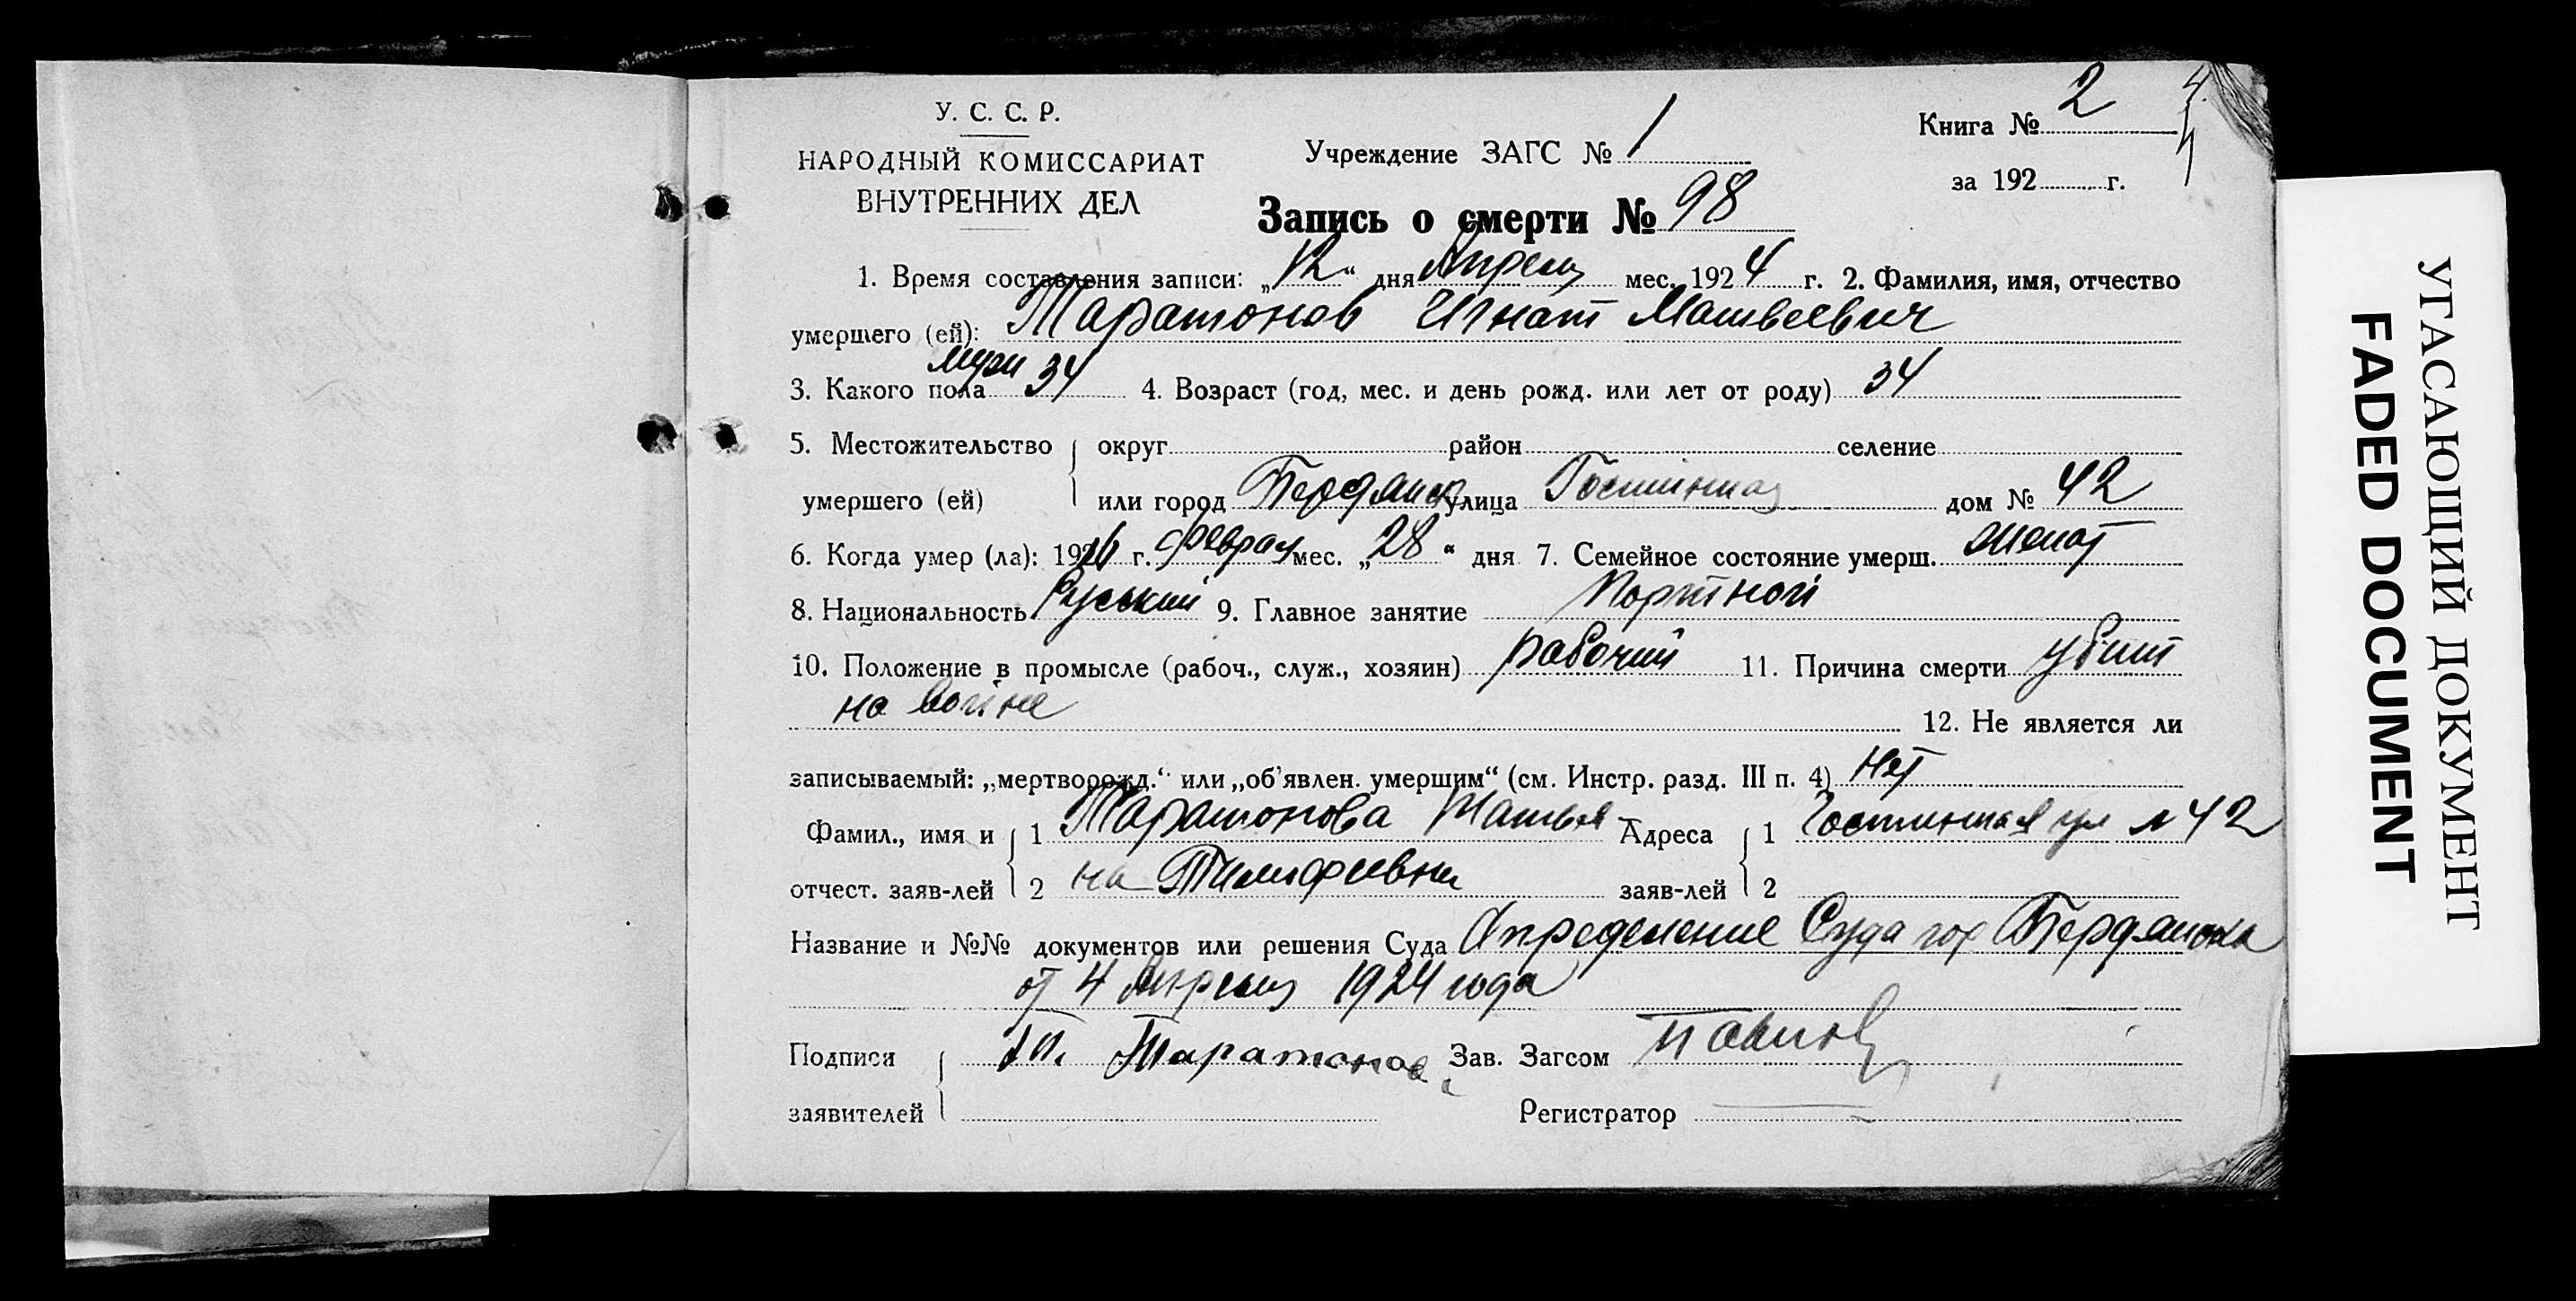 У. С. С. Р.
НАРОДНЫЙ КОМИССАРИАТ
ВНУТРЕННИХ ДЕЛ
Учреждение ЗАГС № 1
Книга № 2
за 192 г.
Запись о смерти № 98
1. Время составления записи: „12“ дня Апреля мес. 1924 г. 2. Фамилия, имя, отчество
умершего (ей): Таратонов Игнат Матвеевич
3. Какого пола муж 34 4. Возраст (год, мес. и день рожд. или лет от роду) 34
5. Местожительство округ район селение
умершего (ей) или город Бердянск улица Гостинная дом № 42
6. Когда умер (ла): 1916 г. февраля мес. „28“ дня 7. Семейное состояние умерш. женат
8. Национальность Руський 9. Главное занятие Портной
10. Положение в промысле (рабоч., служ., хозяин) рабочий 11. Причина смерти убит
на войне 12. Не является ли
записываемый: „мертворожд.“ или „об'явлен. умершим“ (см. Инстр. разд. III п. 4) Нет
Фамил., имя и 1 Таратонова Татья Адреса 1 Гостинная ул № 42
отчест. заяв-лей 2 на Тимофеевна заяв-лей 2
Название и №№ документов или решения Суда Определение Суда гор Бердянска
от 4 Апреля 1924 года
Подписи Таратонова Зав. Загсом
заявителей Регистратор
УГАСАЮЩИЙ ДОКУМЕНТ
FADED DOCUMENT